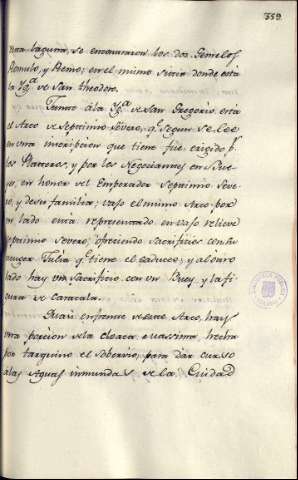 359
una laguna, se encontraron los dos Gemelos
Romulo, y Remo; en el mismo sitio donde está
la Ygª. de San Theodoro.
Junto á la Ygª. de San Gregorio está
el Arco de Septimio Severo, qᵉ. segun se lee
en una inscripcion que tiene fué erigido pʳ.
los Plateros, y por los Negociantes en Bue-
yes, en honor del Emperador Septimio Seve-
ro, y de su familia; vajo el mismo Arco, por
un lado está representado en vajo relieve
Septimio Severo ofreciendo Sacrificios con su
muger Julia qᵉ. tiene el caduceo; y al otro
lado hay un Sacrificio con un Buey, y la fi-
gura de Caracala.
Casi enfrente de este Arco, hay
una porcion de la cloaca maxima, hecha
por Tarquino el Soberbio, para dar curso
a las Aguas inmundas de la Ciudad